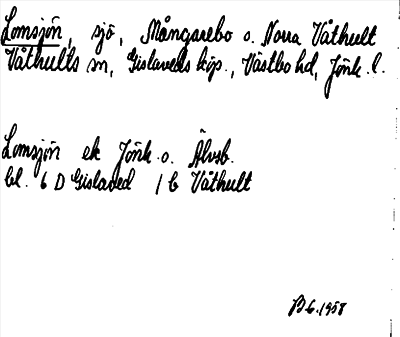 Lomsjön, sjö, Mångarebo o. Norra Våthult
Våthults sn, Gislaveds köp., Västbo hd, Jönk. l.
Lomsjön ek Jönk. o. Älvsb.
bl. 6 D Gislaved 1 b Våthult
B6.1958